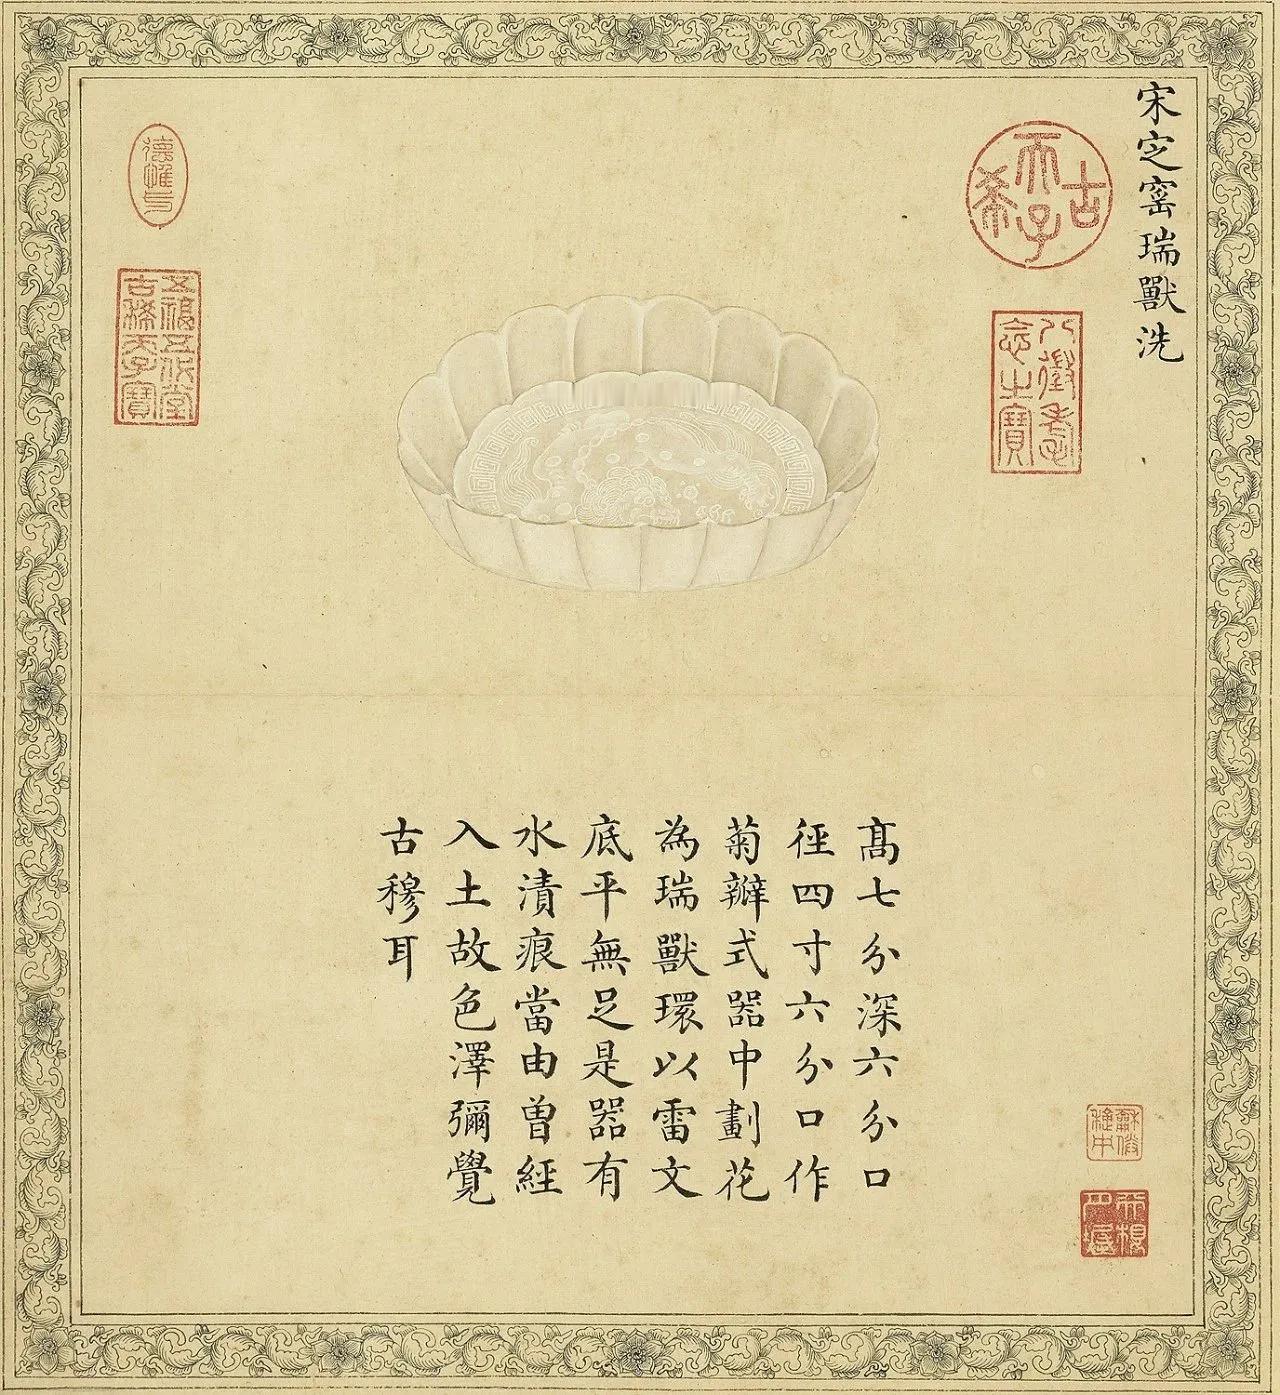 宋定窑瑞獸洗
古希天子
八徵耄念之寶
五福五代堂古稀天子寶
高七分深六分口
徑四寸六分口作
菊瓣式器中劃花
為瑞獸環以雷文
底平無足是器有
水漬痕當由曾經
入土故色澤彌覺
古穆耳